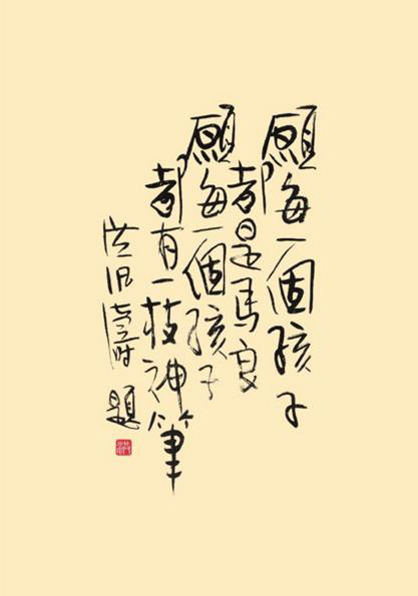 願每一個孩子
都是馬良
願每一個孩子
都有一枝神筆
洪汛濤題